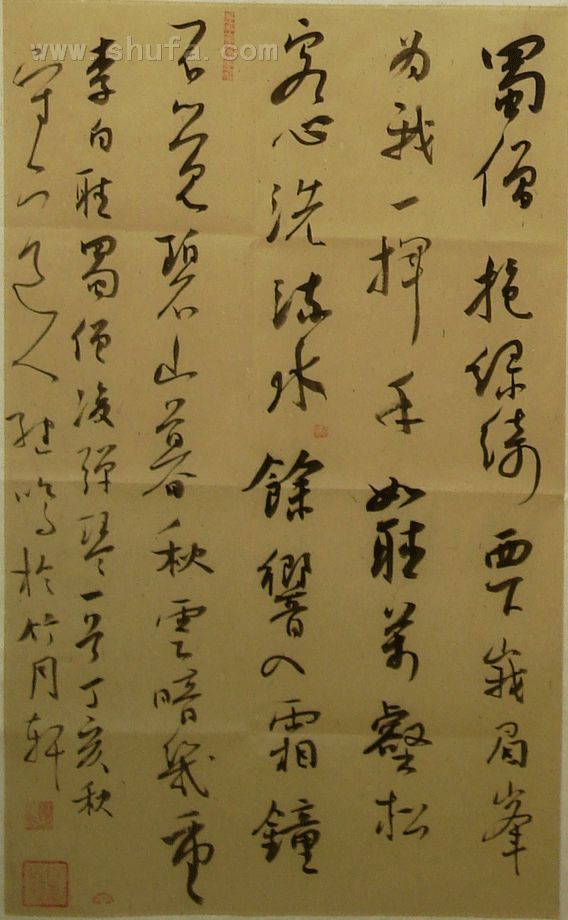 www.shufa.com
蜀僧抱綠綺西下峨眉峯
為我一揮手如聽萬壑松
客心洗流水餘響入霜鐘
不覺碧山暮秋雲暗幾重
李白聽蜀僧浚彈琴一首丁亥秋
道人鳴於竹月軒